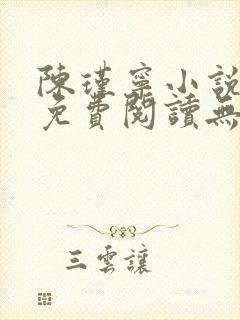 陳瑾寧小說
免費閱讀無
三雲讓